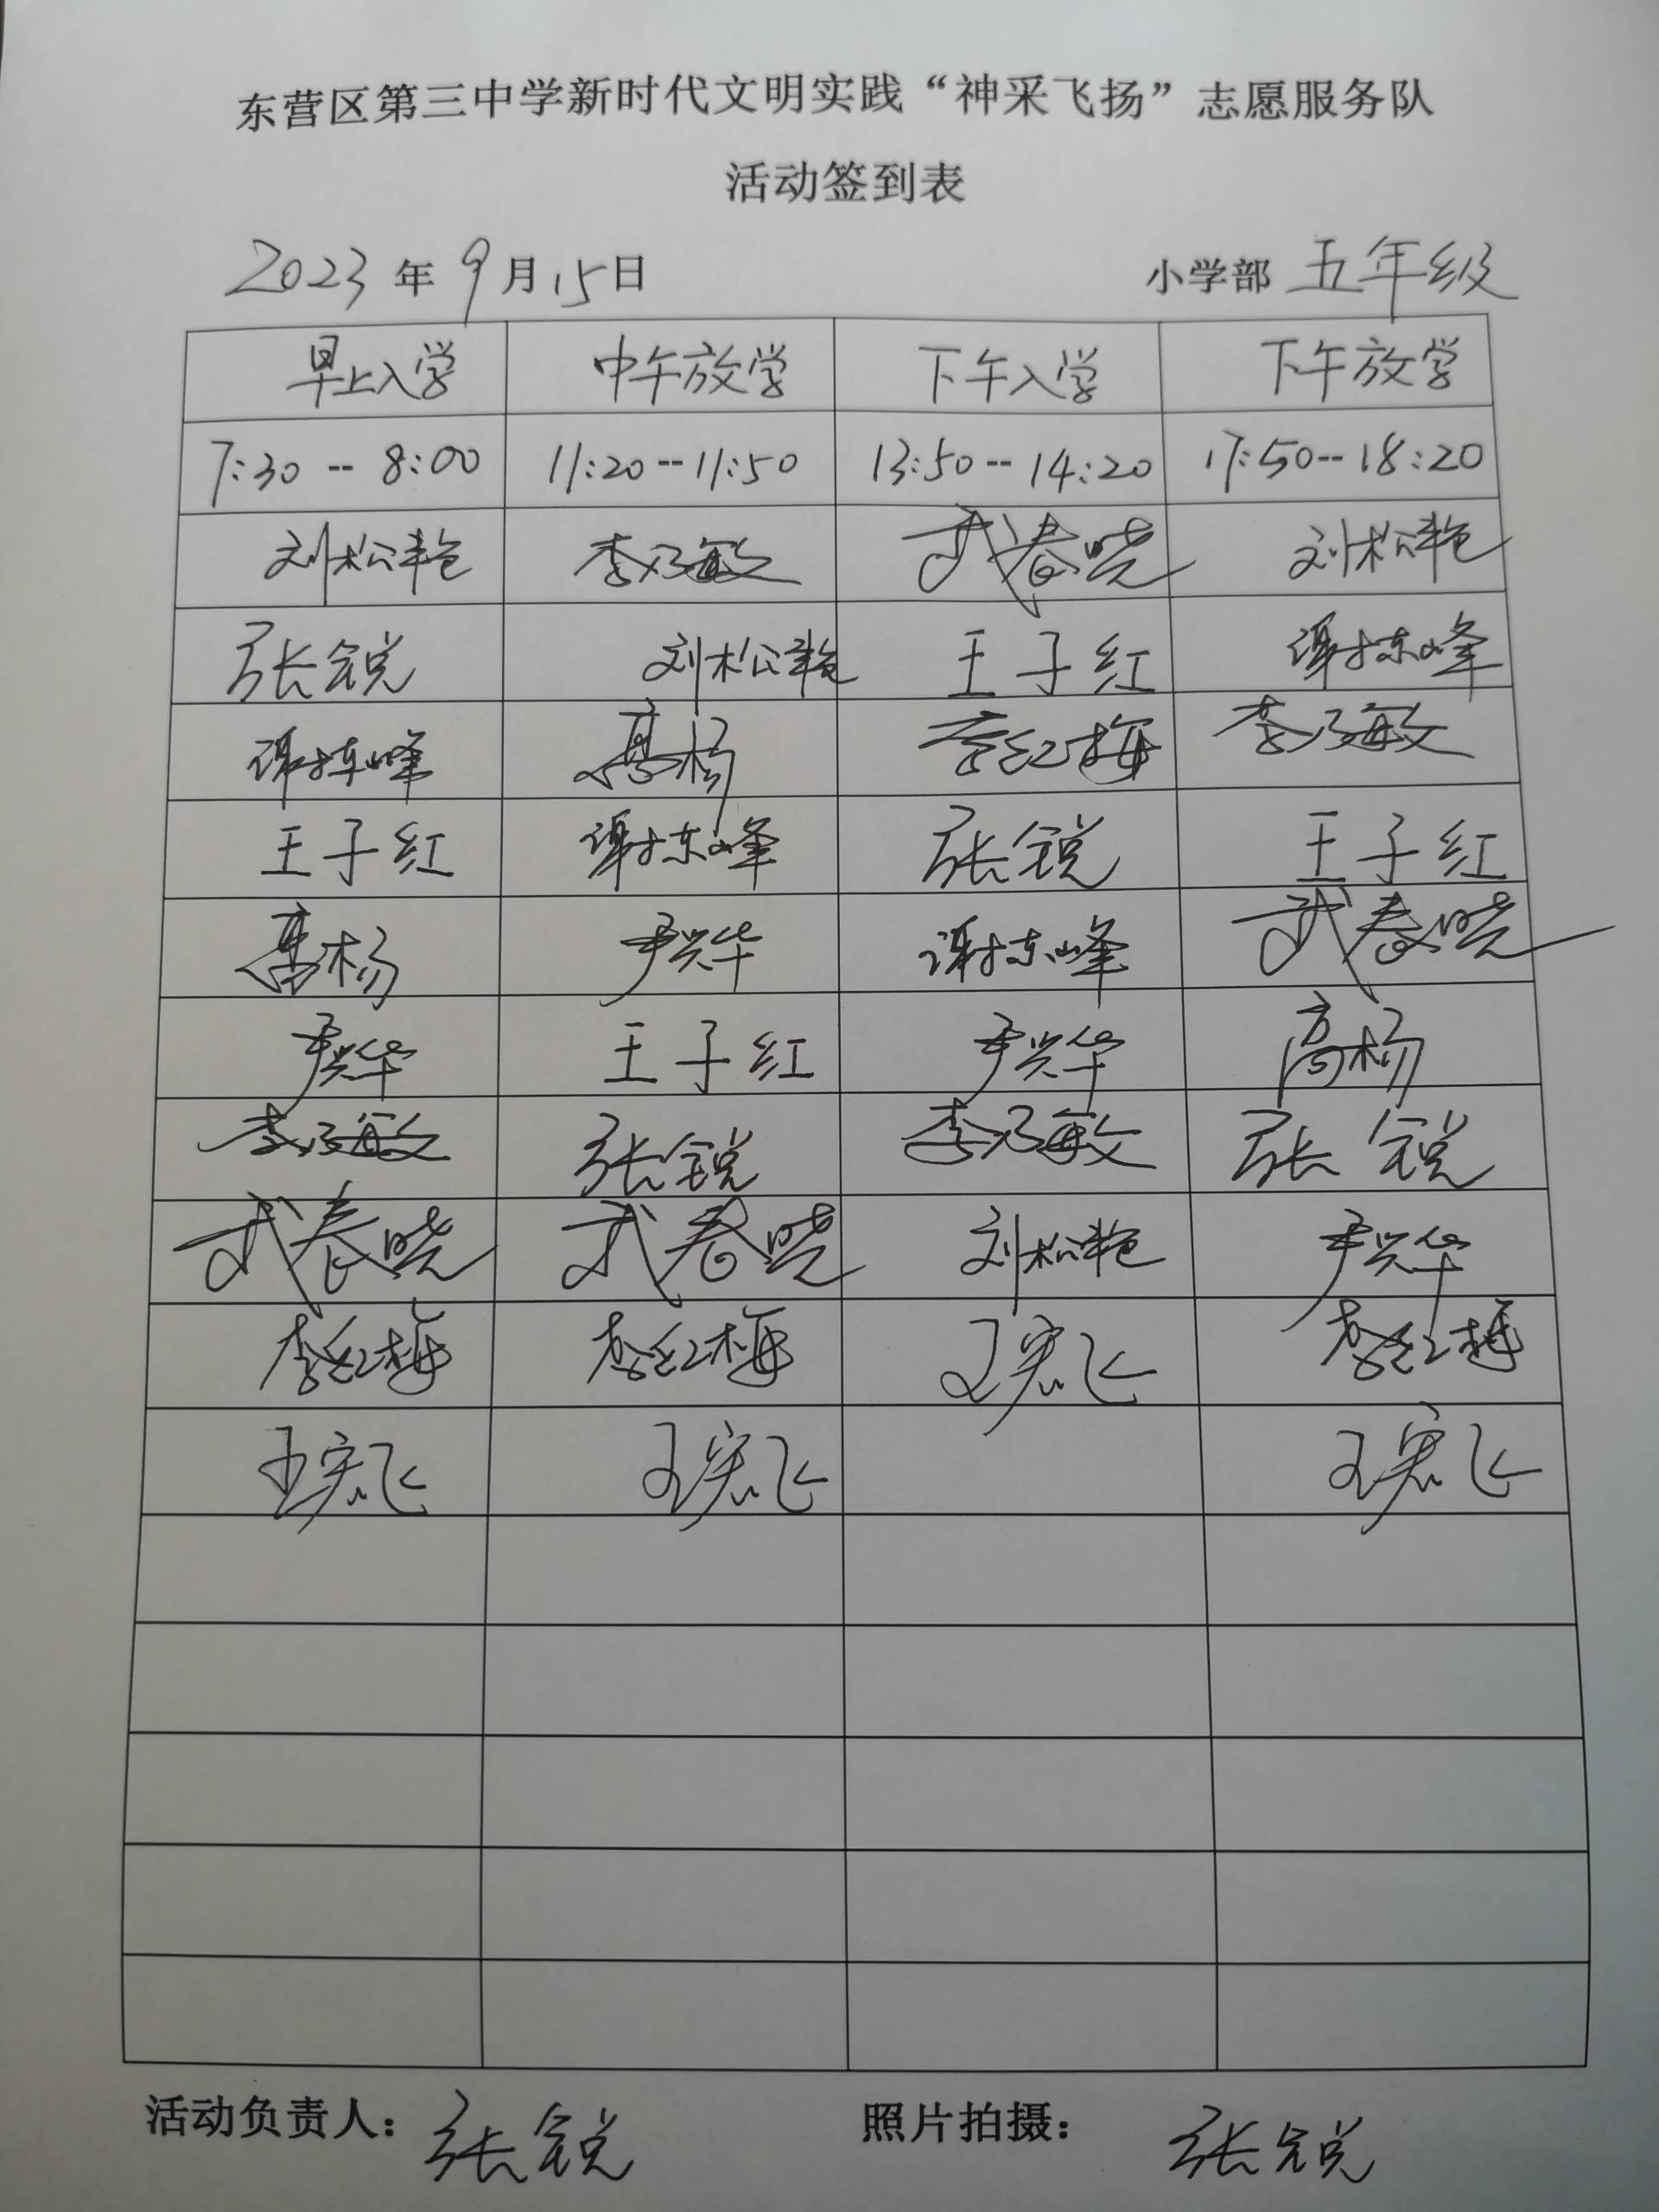 东营区第三中学新时代文明实践“神采飞扬”志愿服务队
活动签到表
2023年9月15日 小学部 五年级
早上入学 中午放学 下午入学 下午放学
7:30--8:00 11:20--11:50 13:50--14:20 17:50--18:20
刘松艳 李乃敏 武春晓 刘松艳
张锐 刘松艳 王子红 谢栋峰
谢栋峰 高杨 李红梅 李乃敏
王子红 谢栋峰 张锐 王子红
高杨 尹兴华 谢栋峰 武春晓
尹兴华 王子红 尹兴华 高杨
李乃敏 张锐 李乃敏 张锐
武春晓 武春晓 刘松艳 尹兴华
李红梅 李红梅 王宪飞 李红梅
王宪飞 王宪飞 王宪飞
活动负责人：张锐 照片拍摄：张锐